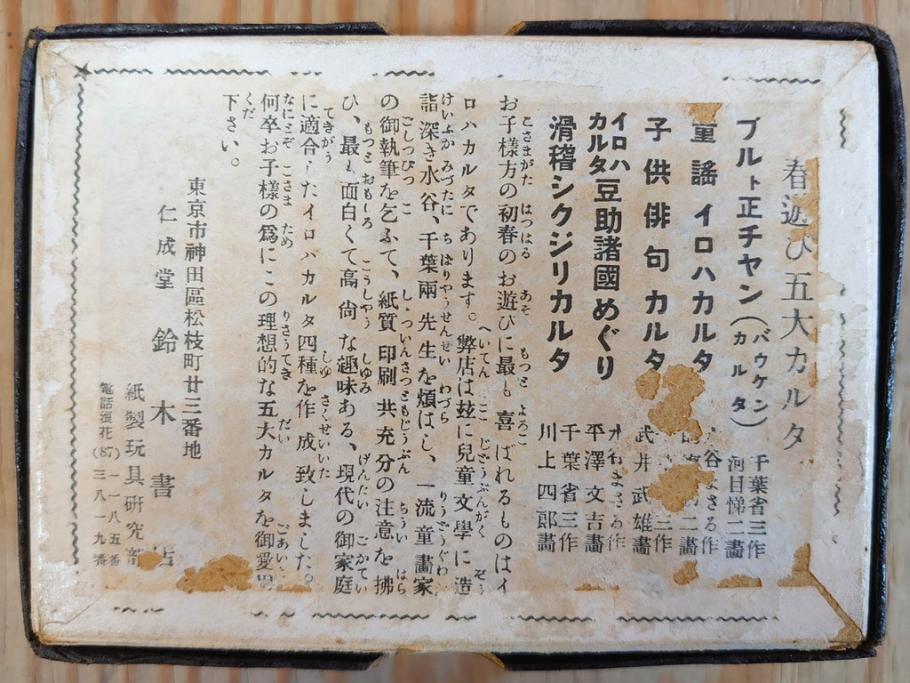 春遊び五大カルタ
プルト正チヤン(バウケンカルタ) 千葉省三作 河目悌二畫
童謠イロハカルタ 谷まさる作 二畫
子供俳句カルタ 三作 武井武雄畫
イロハカルタ豆助諸國めぐり まさる作 平澤文吉畫
滑稽シクジリカルタ 千葉省三作 川上四郎畫
お子様方の初春のお遊びに最も喜ばれるものはイ
ロハカルタであります。弊店は玆に兒童文學に造
詣深き水谷、千葉兩先生を煩はし、一流童畫家
の御執筆を乞ふて、紙質印刷共充分の注意を拂
ひ、最も面白くて高尙な趣味ある、現代の御家庭
に適合したイロハカルタ四種を作成致しました。
何卒お子様の爲にこの理想的な五大カルタを御愛
下さい。
東京市神田區松枝町廿三番地
仁成堂 鈴木書店
紙製玩具硏究部
電話浪花(67)一一八五番 三八一九番